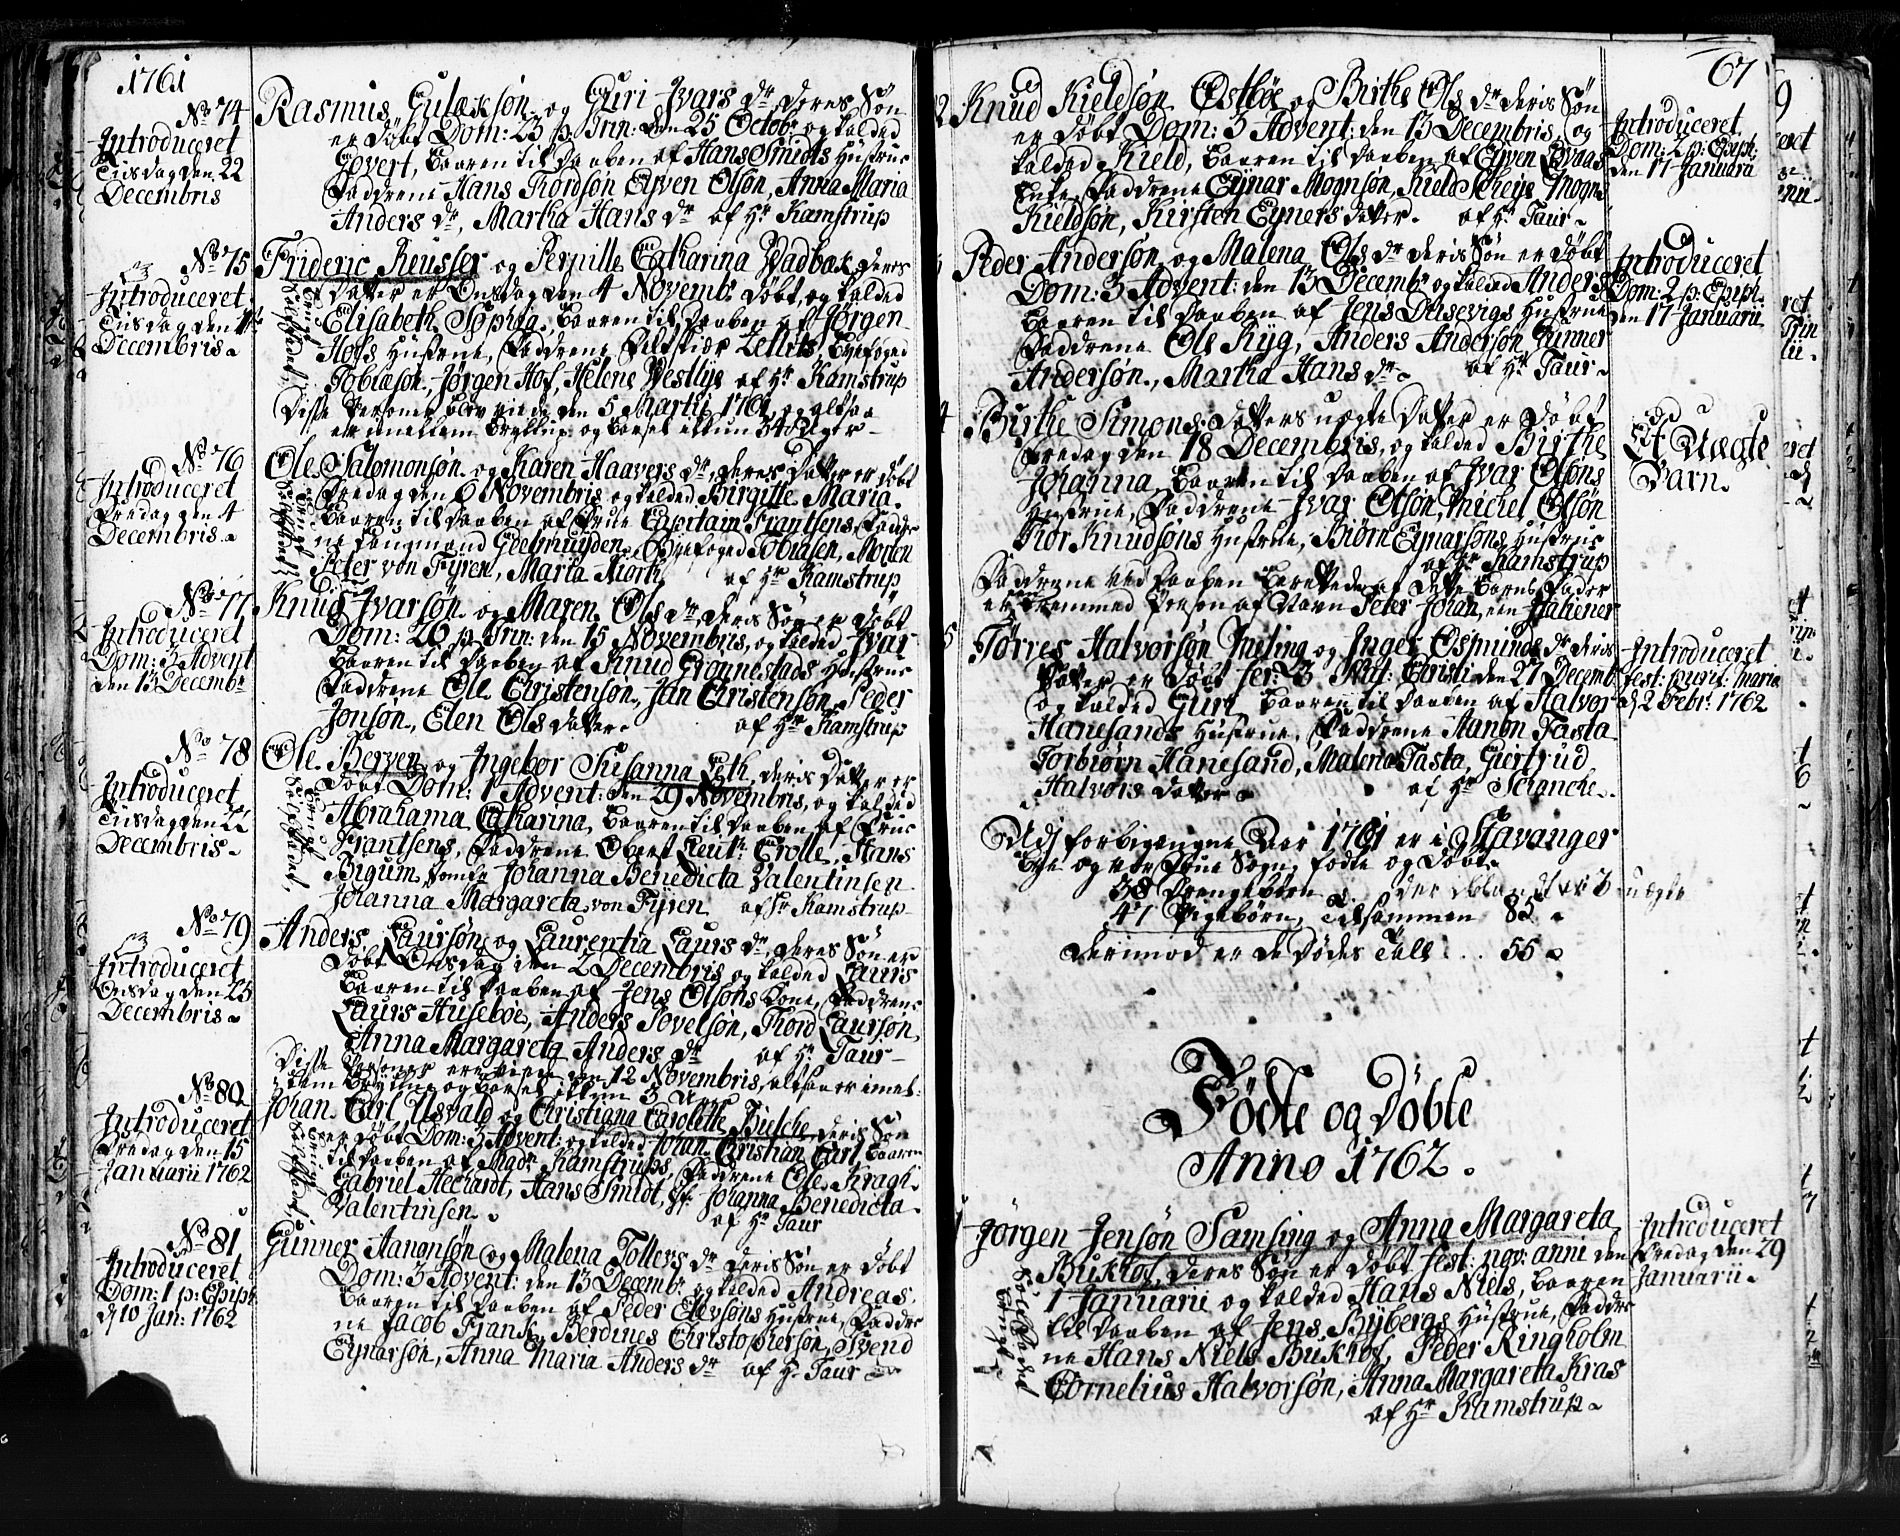 1761
No 74
Introduceret
Tiisdag den 22
Decembris
Rasmus Gulaksøn og Guri Ivars dr deres Søn
er døbt Dom: 23 p. Trin: den 25 Octobr og kalded
Govert, baaren til daaben af Hans Smidts Hustrue
Faddrene Hans Tordsøn Eyven Olsøn, Anna Maria
Anders dr, Martha Hans dr af Hr Kamstrup
No 75
Introduceret
Tiisdag den
Decembris
Frideric Reusser og Pernille Catharina Wadbak deres
Datter er Onsdag den 4 Novembr døbt, og kalded
Elisabeth Sophia, baaren til daaben af Jørgen
Hofs Hustrue, Faddrene Byefoged
Tobiasøn, Jørgen Hof, Helene Westlye af Hr Kamstrup
Disse Personer blev viede den 5 Martii 1761, og altsaa
er imellem Bryllup og Barsel ikkun 34 Uger
No 76
Introduceret
Fredag den 4
Decembris
Ole Salomonsøn og Karen Haavers dr, deres Datter er døbt
Fredag den 6 Novembris og kalded Birgitte Maria
baaren til daaben af Frue Capitain Frantsens, Faddre
ne Laugmand Geelmuyden, Byefoged Tobiasen, Morten
Peter von Fyren, Marta Kiorth af Hr Kamstrup
No 77
Introduceret
Dom: 3 Advent
den 13 Decembr
Knud Ivarsøn og Maren Ols dr, deris Søn er døbt
Dom: 26 p. Trin: den 15 Novembris, og kalded Ivar
baaren til daaben af Knud Grønnestads Hustrue
Faddrene Ole Christensøn, Jan Christensøn, Peder
Jonsøn, Elen Ols datter af Hr Kamstrup
No 78
Introduceret
Tiisdag den 22
Decembris
Ole Berven og Ingebor Susanna Loth, deris Datter er
døbt Dom: 1 Advent: den 29 Novembris, og kalded
Abrahama Catharina, baaren til daaben af Frue
Frantsens, Faddrene Oberst Leut: Crolle, Hans
Bigum Johanna Benedicta Valentinsen
Johanna Margareta von Fyren af Hr Kamstrup
No 79
Introduceret
Onsdag den 23
Decembris
Anders Laursøn og Laurentia Laurs dr, deres Søn er
døbt Onsdag den 2 Decembris og kalded Laurs
baaren til daaben af Jens Olsøns Kone, Faddrene
Laurs Husebøe, Anders Povelsøn, Tiord Laursøn
Anna Margareta Anders dr af Hr Taur
Disse Personer ere viede den 12 Novembris, altsaa er imel-
lem Bryllup og Barsel ikkun 3 Uger
No 80
Introduceret
Fredag den 15
Januarii 1762
Johan Carl Usvald og Christiana Carolethe Bielche, deris Søn
er døbt Dom: 3 Advent: og kalded Johan Christian Carl baaren
til daaben af Madm Kamstrups, Faddrene Ole Kragh
Gabriel Hechardt, Hans Smidt, Johanna Benedicta
Valentinsen
af Hr Taur
No 81
Introduceret
Dom: 1 p: Epiph
d 10 Jan: 1762
Gunner Aanonsøn og Malena Tollevs dr deris Søn er døbt
Dom: 3 Advent: den 13 Decembr og kalded Andreas,
baaren til daaben af Peder Elevsøns Hustrue, Faddre
ne Jacob Frank, Berdines Christophersøn, Svend
Eynarsøn, Anna Maria Anders dr af Hr Taur
67
Knud Kieldsøn Østbøe og Birthe Ols dr deris Søn
er døbt Dom: 3 Advent: den 13 Decembris, og
kalded Kield, baaren til daaben af Eyven
Faddrene Eynar Mognsøn, Kield Mogns
Kieldsøn, Kirsten Eyners datter. af Hr Taur
Introduceret
Dom: 2 p: Epiph:
den 17 Januarii
Peder Andersøn og Malena Ols dr deris Søn er døbt
Dom: 3 Advent: den 13 Decembr og kalded Anders
baaren til daaben af Jens Dusevigs Hustrue
Faddrene Ole Ryg, Anders Andersøn, Gunner
Andersøn, Martha Hans dr af Hr Taur
Introduceret
Dom: 2 p: Epiph:
den 17 Januarii
4
Birthe Simons datters uægte Datter er døbt
Fredag den 18 Decembris, og kalded Birthe
Johanna, baaren til daaben af Ivar Olsøns
Hustrue, Faddrene Ivar Olsøn, Michel Olsøn
Tor Knudsøns Hustrue, Biørn Eynarsøns Hustrue
af Hr Kamstrup
Faddrene ved daaben at dette Barns Fader
er en fremmed Person af Navn Peter Johan, een Italiener
Et Uægte
Barn
5
Tørres Halvorsøn Meling og Inger Osmunds dr deris
Datter er døbt fer: 3 Nat: Christi den 27 Decemb
og kalded Guri, baaren til daaben af Halvor
Hanesands Hustrue, Faddrene Aanon Tasta
Torbiørn Hanesand, Malena Tasta, Giertrud
Halvors datter af Hr Schanche
Introduceret
fest: purif: Mariæ
d 2 Febr: 1762
Udj forbigangne Aar 1761 er i Stavanger
Bye og vor Frue Sogn, fødte og døbte
38 Drengebørn der iblandt ere uægte
47 Pigebørn, Tilsammen 85
Derimod er de Dødes Tall . . . 55
Fødte og Døbte
Anno 1762.
1
Jørgen Jensøn Samsing og Anna Margareta
Bukhof, deres Søn er døbt fest: nov: anni den
1 Januarii og kalded Hans Niels, baaren
til daaben af Jens Bybergs Hustrue, Faddre
ne Hans Niels Bukhof, Peder Ringholm
Cornelius Halvorsøn, Anna Margareta Kras
af Hr Kamstrup
Introduceret
Fredag den 29
Januarii